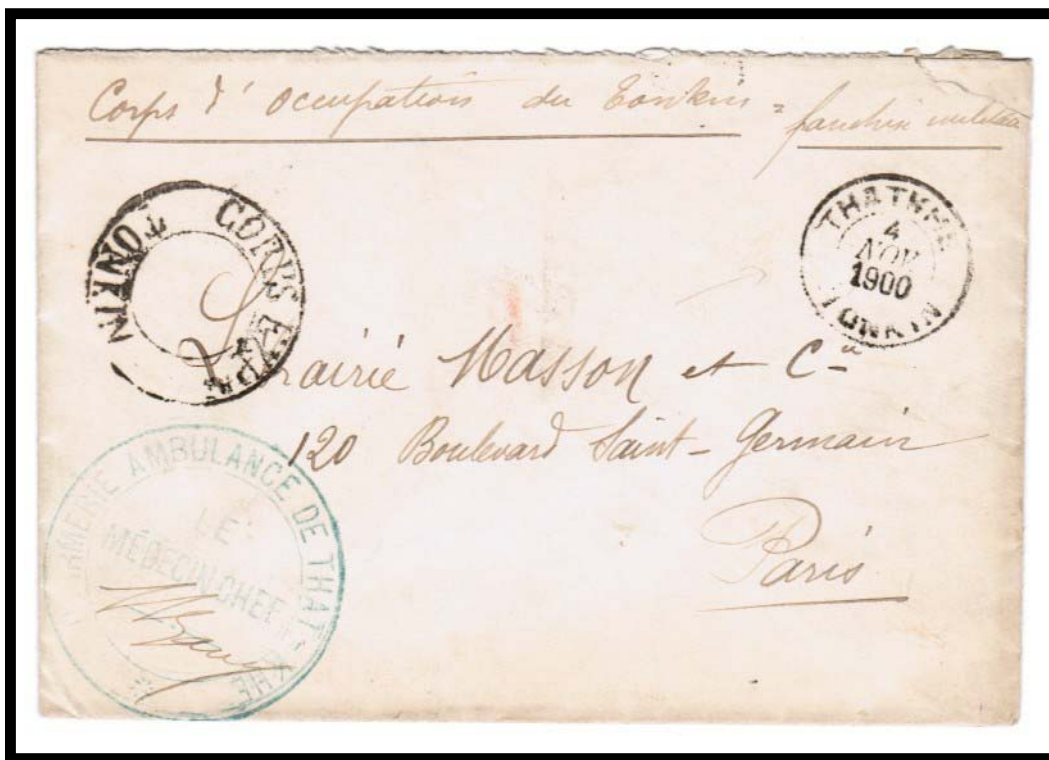 Corps d'Occupation du Tonkin = franchise militaire
THATKHÉ
4
NOV
1900
TONKIN
CORPS EXPÉD.
TONKIN
Librairie Masson et Cie
120 Boulevard Saint-Germain
Paris
INFIRMERIE AMBULANCE DE THAT-KHÉ
LE
MÉDECIN CHEF